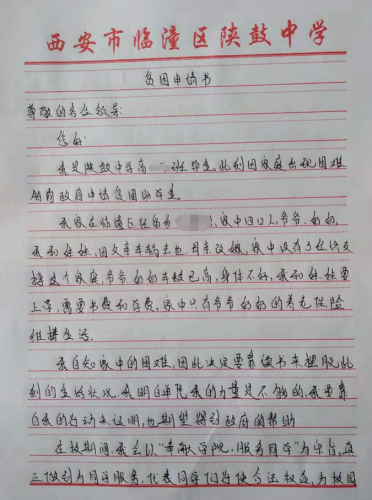 西安市临潼区陕鼓中学
贫困申请书
尊敬的各位领导:
您好
我是陕鼓中学高一 班学生,此刻因家庭出现困难
特向政府申请贫困助学金
我家在临潼区任留乡 ,家中四口人,爷爷、奶奶、
我和妹妹,因父亲车祸去世,母亲改嫁,家中没有了经济支
撑这个家庭,爷爷、奶奶年级已高,身体不好,我和妹妹要
上学,需要书费和学费,家中只有爷爷奶奶的养老保险
维持生活.
我自知家中的困难,因此决定要靠读书来摆脱此
刻的生活状况,我明白单凭我的力量是不够的,我要靠
自我的行动来证明,也期望得到政府的帮助
在校期间,我会以“奉献学院,服务同学”为宗旨,真
正做到为同学服务,代表同学们行使合法权益,为校园